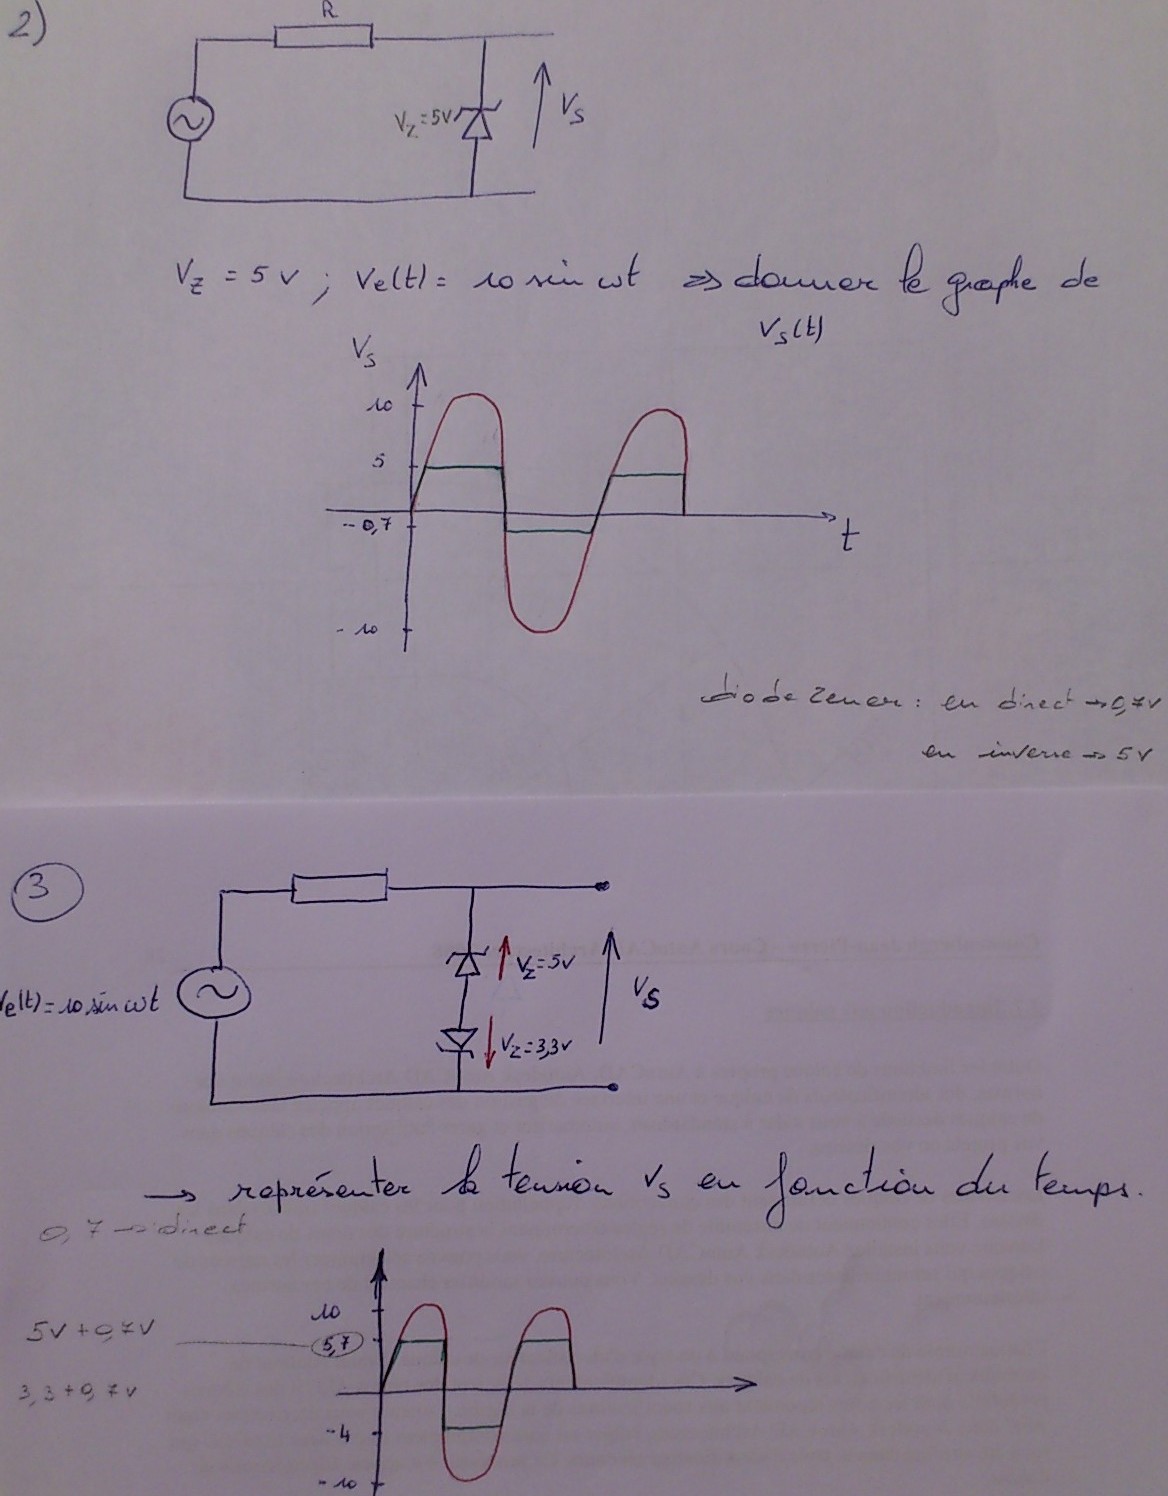 2)
R
V_Z = 5V
V_S
V_Z = 5 V ; Ve(t) = 10 sin ωt ⇒ donner le graphe de
V_S(t)
V_S
10
5
- 0,7
t
- 10
diode Zener : en direct → 0,7V
en inverse → 5V
3
V_Z = 5V
V_S
Ve(t) = 10 sin ωt
V_Z = 3,3V
→ représenter la tension V_S en fonction du temps.
0,7 → direct
10
5V + 0,7V
5,7
3,3 + 0,7V
- 4
- 10